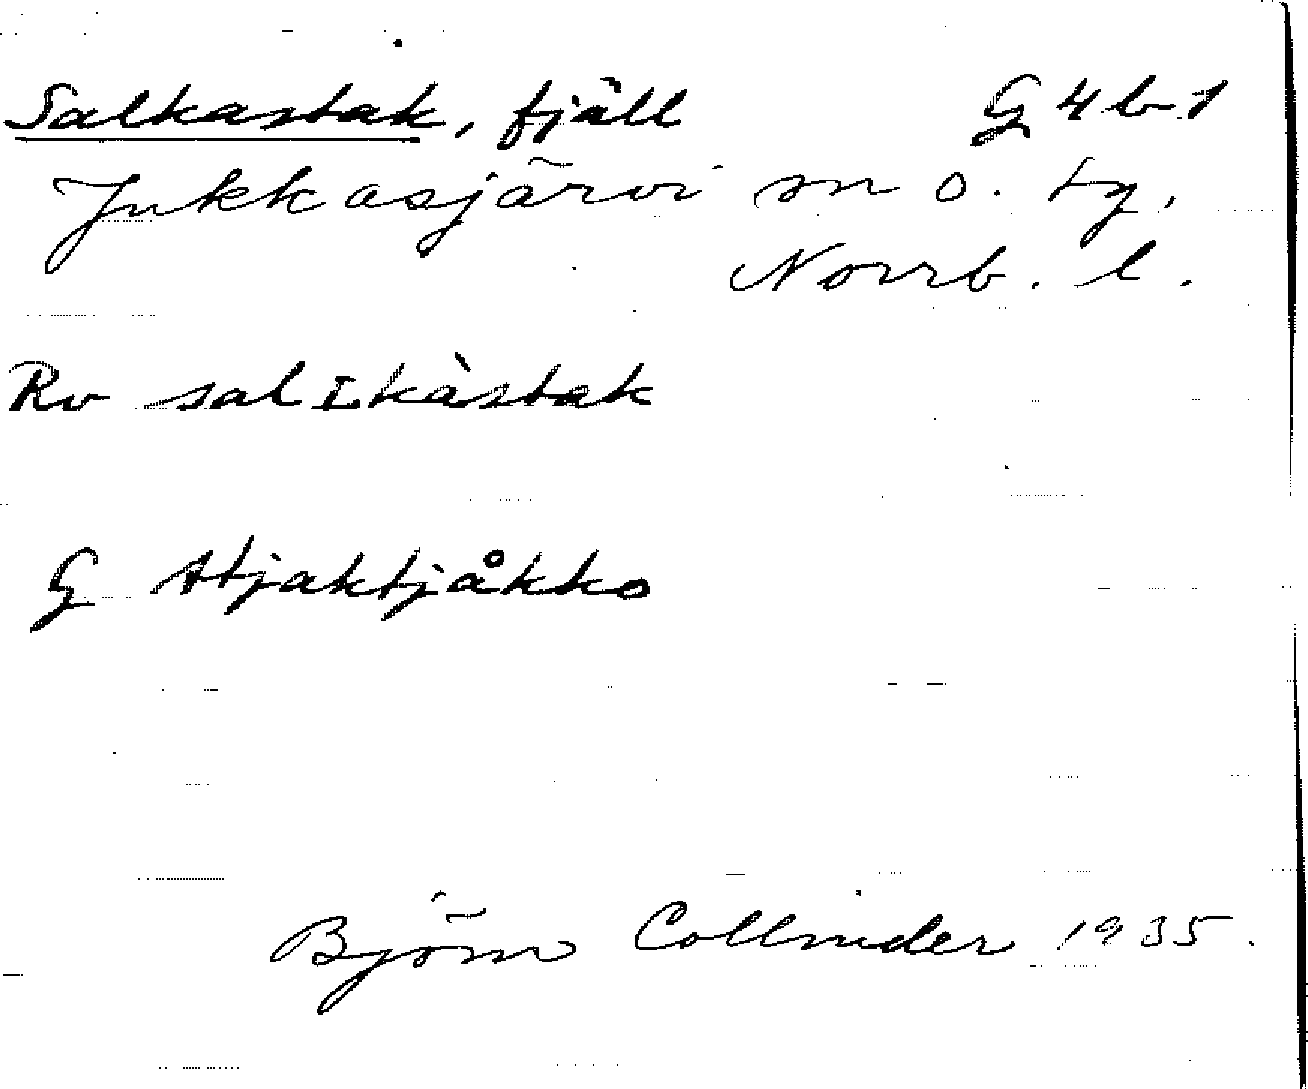 Salkastak, fjäll G 4 b 1
Jukkasjärvi sn o. tg.
Norrb. l.
Rv salɪkàstak
G Stjaktjåkko
Björn Collinder 1935.